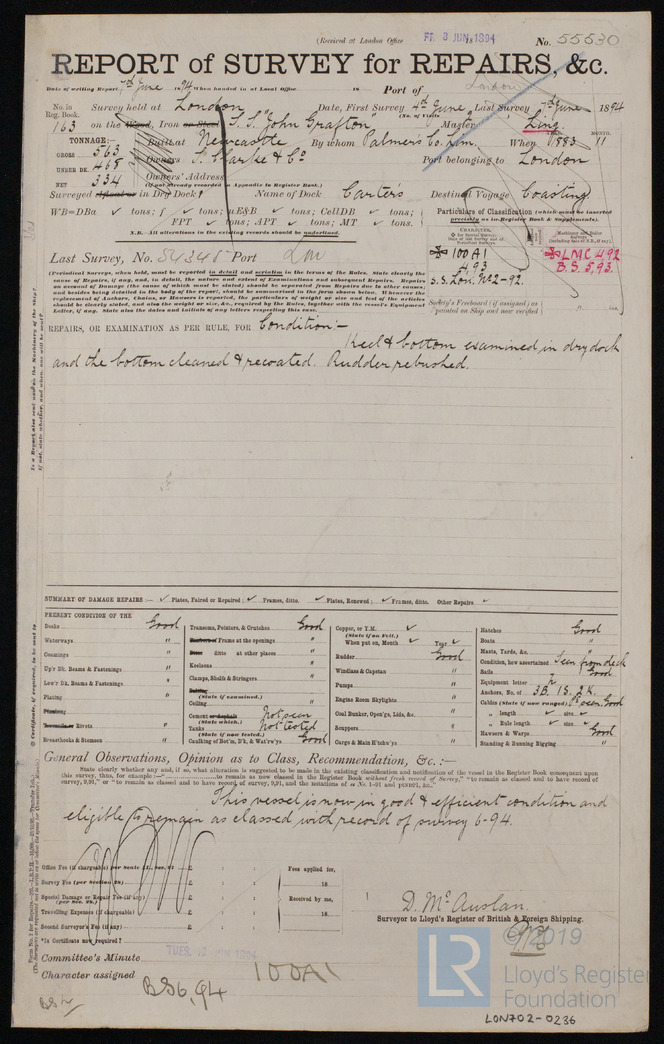 (Received at London Office FRI 8 JUN 1894 18
No. 55530
REPORT of SURVEY for REPAIRS, &c.
Date of writing Report 7th June 1894 When handed in at Local Office 18 Port of London
No. in Reg. Book. Survey held at London Date, First Survey 4th June Last Survey 7th June 1894
(No. of Visits
163 on the Wood, Iron or Steel S.S. "John Grafton" Master King
TONNAGE:— Built at Newcastle By whom Palmers Co. Lim. When 1883 MONTH. 11
GROSS 563
UNDER DK. 468 Owners Port belonging to London
NET 334 Owners' Address
(if not already recorded in Appendix to Register Book.)
Surveyed Afloat or in Dry Dock? Name of Dock Carter's Destined Voyage Coasting
WB=DBa ✓ tons; f ✓ tons; uE&B ✓ tons; CellDB ✓ tons;
FPT ✓ tons; APT ✓ tons; MT ✓ tons.
N.B.—All alterations in the existing records should be underlined.
Particulars of Classification (which must be inserted precisely as in Register Book & Supplements).
Last Survey, No. 54345 Port Lon
100A1
4.93
S.S. Lon. No2-92.
LMC 4.92
B.S. 5.93.
(Periodical Surveys, when held, must be reported in detail and seriatim in the terms of the Rules. State clearly the cause of Repairs, if any, and, in detail, the nature and extent of Examinations and subsequent Repairs. Repairs on account of Damage (the cause of which must be stated) should be separated from Repairs due to other causes; and besides being detailed in the body of the report, should be summarised in the form shown below. Whenever the replacement of Anchors, Chains, or Hawsers is reported, the particulars of weight or size and test of the articles should be clearly stated, and also the weight or size, &c., required by the Rules, together with the vessel's Equipment Letter, if any. State also the dates and initials of any letters respecting this case.
Society's Freeboard (if assigned) as painted on Ship and now verified
REPAIRS, OR EXAMINATION AS PER RULE, FOR Condition:—
Keel & bottom examined in dry dock
and the bottom cleaned & recoated. Rudder rebushed.
SUMMARY OF DAMAGE REPAIRS :— ✓ Plates, Faired or Repaired; ✓ Frames, ditto. ✓ Plates, Renewed; ✓ Frames, ditto. Other Repairs ✓
PRESENT CONDITION OF THE
Decks Good
Waterways "
Coamings "
Up'r Dk. Beams & Fastenings "
Low'r Dk. Beams & Fastenings "
Plating "
Planking
Treenails or Rivets "
Breasthooks & Stemson "
Transoms, Pointers, & Crutches Good
Frame at the openings "
ditto at other places "
Keelsons "
Clamps, Shelfs & Stringers "
(State if examined.)
Ceiling "
Cement or Asphalt Not seen
(State which.)
Tanks Not tested
(State if now tested.)
Caulking of Bot'm, D'k, & Wat'rw'ys Good
Copper, or Y.M. ✓
(State if on Felt.)
When put on, Month ✓ Year ✓
Rudder Good
Windlass & Capstan "
Pumps "
Engine Room Skylights "
Coal Bunker, Open'gs, Lids, &c. "
Scuppers "
Cargo & Main H'tchw'ys "
Hatches Good
Boats "
Masts, Yards, &c. "
Condition, how ascertained Seen from deck
Sails Good
Equipment letter
Anchors, No. of 3B. 1S. 2K.
Cables (State if now ranged) Good
" length ✓ size ✓
" Rule length ✓ size ✓
Hawsers & Warps Good
Standing & Running Rigging "
General Observations, Opinion as to Class, Recommendation, &c. :—
State clearly whether any, and if so, what alteration is suggested to be made in the existing classification and notification of the vessel in the Register Book consequent upon
This vessel is now in good & efficient condition and
eligible to remain as classed with record of survey 6-94.
Office Fee (if chargeable) £ : :
Survey Fee (per Section 28) £ : :
Special Damage or Repair Fee (if any) £ : :
(per Sec. 28.)
Travelling Expenses (if chargeable) £ : :
Second Surveyor's Fee (if any) £ : :
*Is Certificate now required?
Fees applied for,
18
Received by me,
18
D. McAuslan.
Surveyor to Lloyd's Register of British & Foreign Shipping.
Committee's Minute TUES. 12 JUN 1894
Character assigned 100A1
BS6,94
© 2019
LR
Lloyd's Register
Foundation
LON702-0236